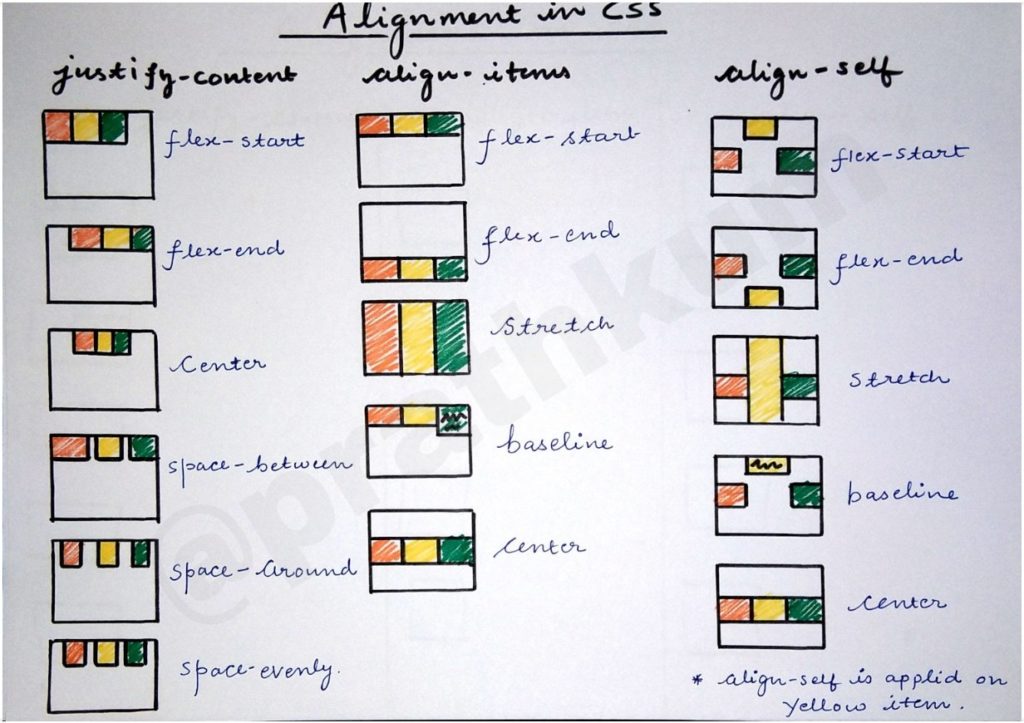 Alignment in CSS
justify-content
flex-start
flex-end
Center
space-between
space-around
space-evenly.
align-items
flex-start
flex-end
Stretch
baseline
Center
align-self
flex-start
flex-end
Stretch
baseline
Center
* align-self is applid on
Yellow item.
@prathkum